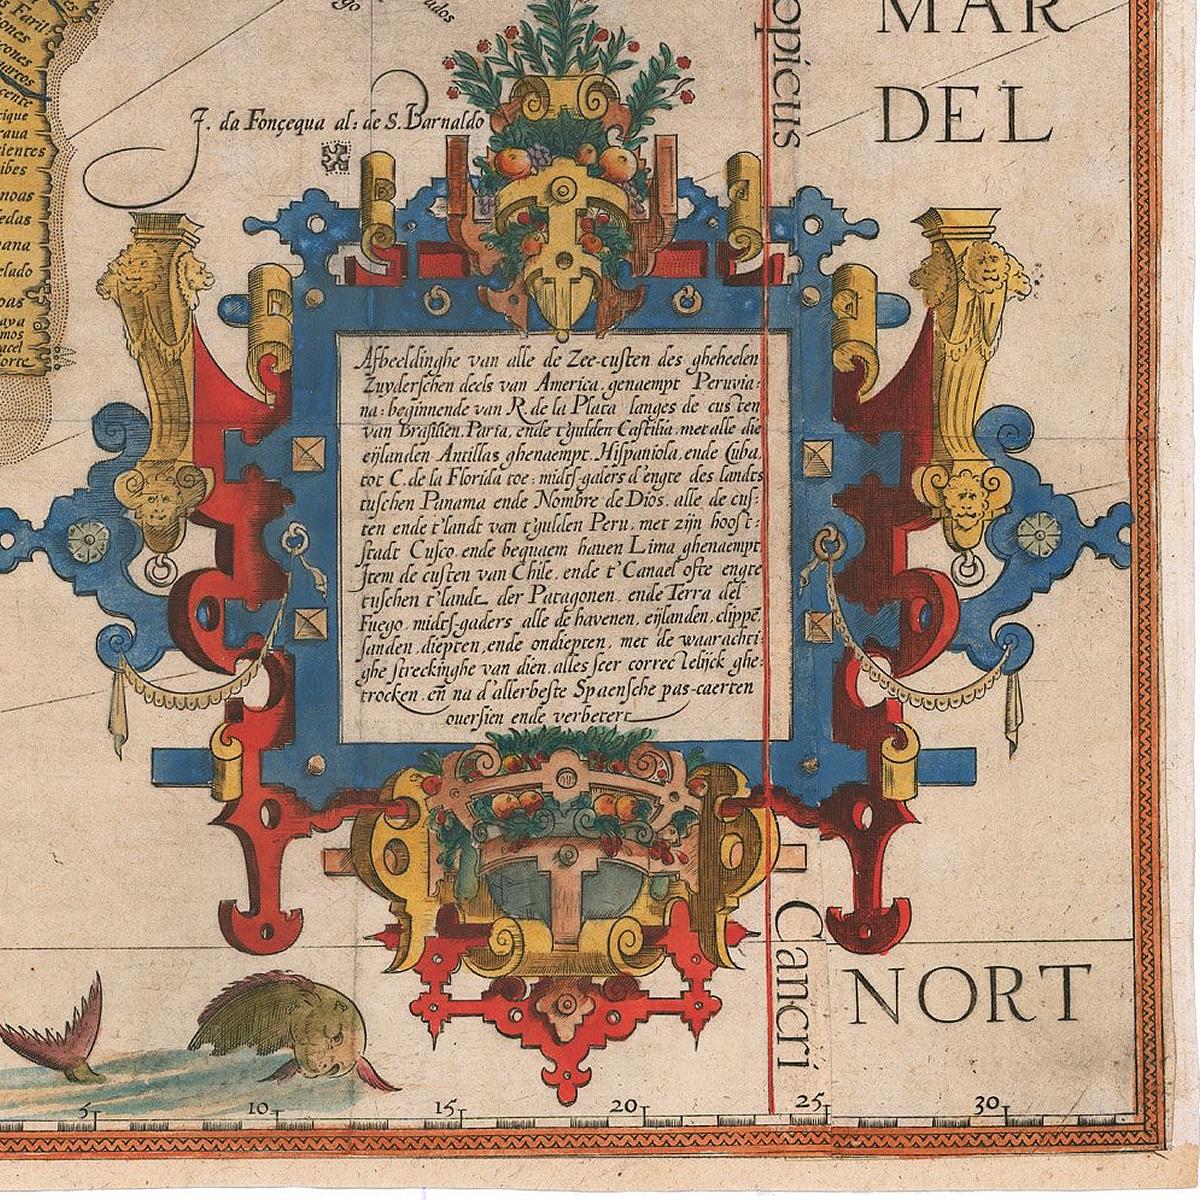 MAR
DEL
opicus
go
udos
J. da Fonçequa al: de S. Barnaldo
Faril
ones
cones
garros
cente
cique
raua
cientes
ibes
noas
edas
pana
elado
oas
aya
mos
acel
orte
Afbeeldinghe van alle de Zee-custen des gheheelen
Zuyderschen deels van America, genaempt Peruvia-
na: beginnende van R. de la Plata langes de custen
van Brasilien, Paria, ende t'gulden Castilia, met alle die
eijlanden Antillas ghenaempt, Hispaniola, ende Cuba,
tot C. de la Florida toe: midts-gaders d'engte des landts
tuschen Panama ende Nombre de Dios, alle de cus-
ten ende t'landt van t'gulden Peru, met zijn hooft-
stadt Cusco, ende bequaem hauen Lima ghenaempt,
Item de custen van Chile, ende t'Canael ofte engte
tuschen t'landt der Patagonen, ende Terra del
Fuego, midts-gaders alle de havenen, eijlanden, clippē,
sanden, diepten, ende ondiepten, met de waarachti-
ghe streckinghe van dien, alles seer correctelijck ghe-
trocken, eñ na d'allerbeste Spaensche pas-caerten
ouersien ende verbetert
Cancri
NORT
5 10 15 20 25 30